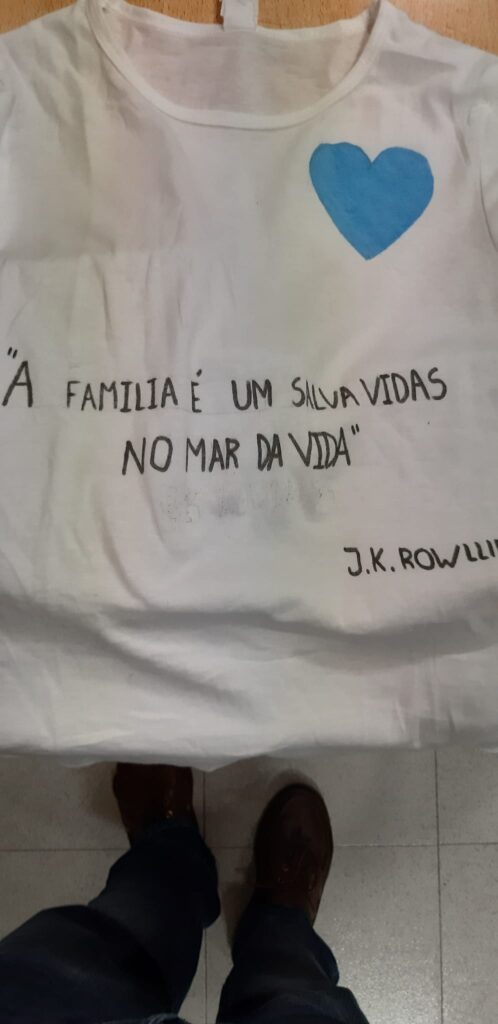 "A FAMILIA É UM SALVA VIDAS
NO MAR DA VIDA"
J.K. ROWLLI